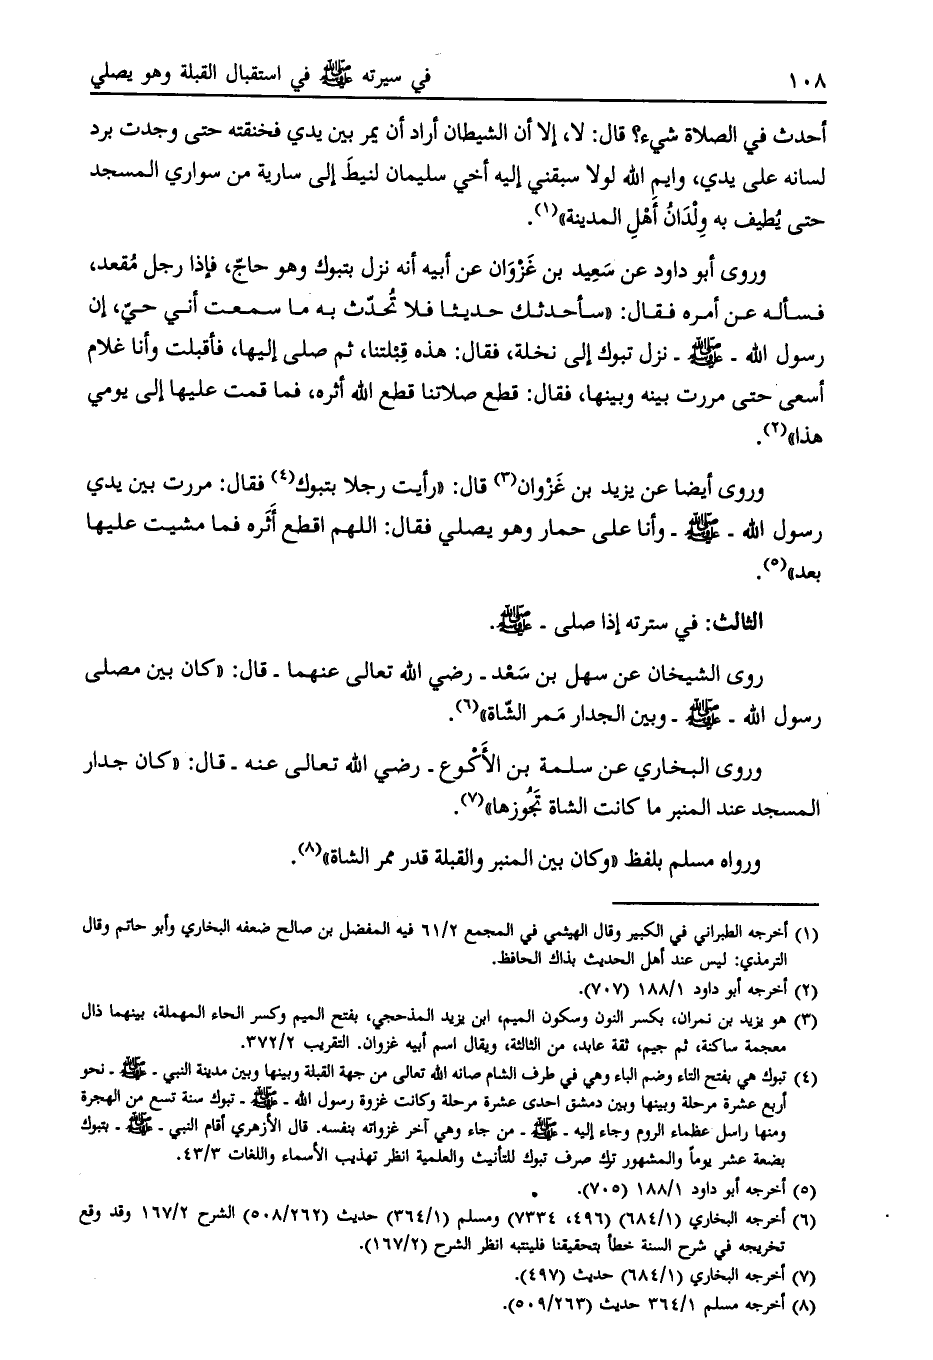 ١٠٨ في سيرته ﷺ في استقبال القبلة وهو يصلي
أحدث في الصلاة شيء؟ قال: لا، إلا أن الشيطان أراد أن يمر بين يدي فخنقته حتى وجدت برد
لسانه على يدي، وايم الله لولا سبقني إليه أخي سليمان لنيطَ إلى سارية من سواري المسجد
حتى يُطيف به وِلْدَانُ أَهْلِ المدينة»(١).
وروى أبو داود عن سَعِيد بن غَزْوَان عن أبيه أنه نزل بتبوك وهو حاجّ، فإذا رجل مُقعد،
فسأله عن أمره فقال: «سأحدثك حديثا فلا تُحدّث به ما سمعت أني حيّ، إن
رسول الله - ﷺ - نزل تبوك إلى نخلة، فقال: هذه قِبْلتنا، ثم صلى إليها، فأقبلت وأنا غلام
أسعى حتى مررت بينه وبينها، فقال: قطع صلاتنا قطع الله أثره، فما قمت عليها إلى يومي
هذا»(٢).
وروى أيضا عن يزيد بن غَزْوان(٣) قال: «رأيت رجلا بتبوك(٤) فقال: مررت بين يدي
رسول الله - ﷺ - وأنا على حمار وهو يصلي فقال: اللهم اقطع أَثَره فما مشيت عليها
بعد»(٥).
الثالث: في سترته إذا صلى - ﷺ.
روى الشيخان عن سهل بن سَعْد - رضي الله تعالى عنهما - قال: «كان بين مصلى
رسول الله - ﷺ - وبين الجدار مَمر الشّاة»(٦).
وروى البخاري عن سلمة بن الأَكْوع - رضي الله تعالى عنه - قال: «كان جدار
المسجد عند المنبر ما كانت الشاة تَجُوزها»(٧).
ورواه مسلم بلفظ «وكان بين المنبر والقبلة قدر ممر الشاة»(٨).
(١) أخرجه الطبراني في الكبير وقال الهيثمي في المجمع ٦١/٢ فيه المفضل بن صالح ضعفه البخاري وأبو حاتم وقال
الترمذي: ليس عند أهل الحديث بذاك الحافظ.
(٢) أخرجه أبو داود ١٨٨/١ (٧٠٧).
(٣) هو يزيد بن نمران، بكسر النون وسكون الميم، ابن يزيد المذحجي، بفتح الميم وكسر الحاء المهملة، بينهما ذال
معجمة ساكنة، ثم جيم، ثقة عابد، من الثالثة، ويقال اسم أبيه غزوان. التقريب ٣٧٢/٢.
(٤) تبوك هي بفتح التاء وضم الباء وهي في طرف الشام صانه الله تعالى من جهة القبلة وبينها وبين مدينة النبي - ﷺ - نحو
أربع عشرة مرحلة وبينها وبين دمشق احدى عشرة مرحلة وكانت غزوة رسول الله - ﷺ - تبوك سنة تسع من الهجرة
ومنها راسل عظماء الروم وجاء إليه - ﷺ - من جاء وهي آخر غزواته بنفسه. قال الأزهري أقام النبي - ﷺ - بتبوك
بضعة عشر يوماً والمشهور ترك صرف تبوك للتأنيث والعلمية انظر تهذيب الأسماء واللغات ٤٣/٣.
(٥) أخرجه أبو داود ١٨٨/١ (٧٠٥).
(٦) أخرجه البخاري (٦٨٤/١) (٤٩٦، ٧٣٣٤) ومسلم (٣٦٤/١) حديث (٥٠٨/٢٦٢) الشرح ١٦٧/٢ وقد وقع
تخريجه في شرح السنة خطأ بتحقيقنا فلينتبه انظر الشرح (١٦٧/٢).
(٧) أخرجه البخاري (٦٨٤/١) حديث (٤٩٧).
(٨) أخرجه مسلم ٣٦٤/١ حديث (٥٠٩/٢٦٣).